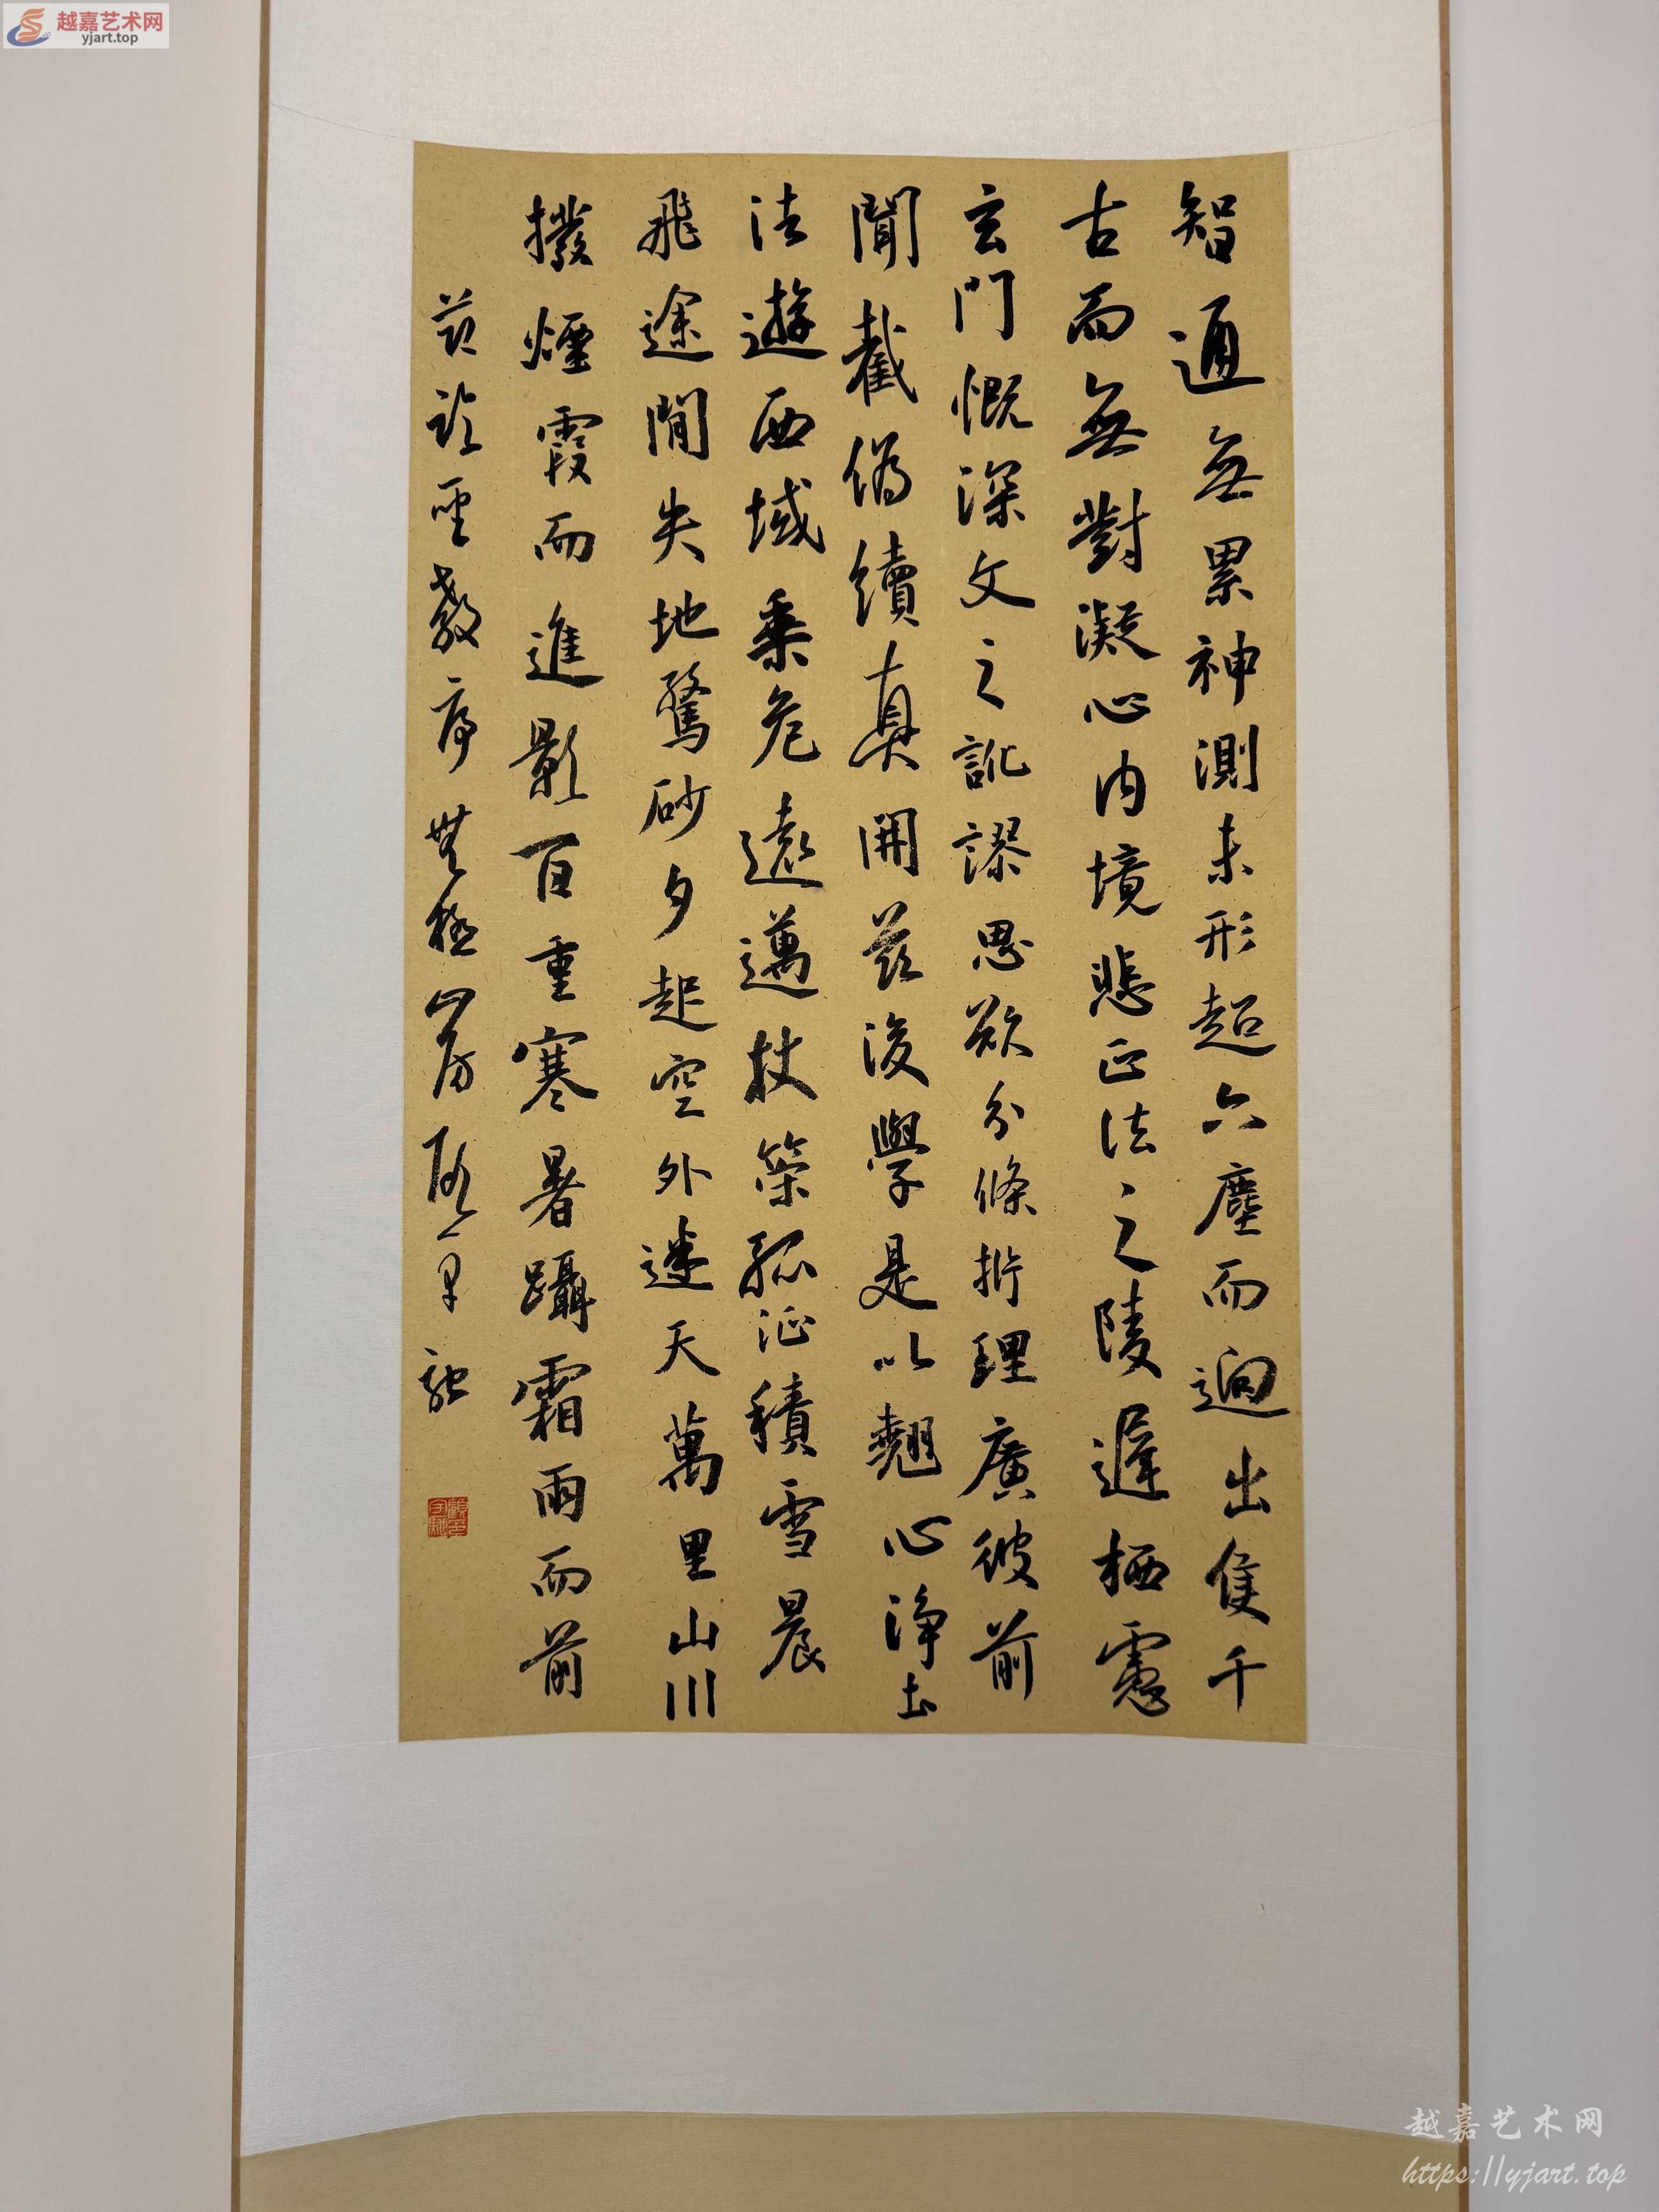 越嘉艺术网
yjart.top
智通無累神測未形超六塵而迥出隻千
古而無對凝心內境悲正法之陵遲栖慮
玄門慨深文之訛謬思欲分條析理廣彼前
聞截偽續真開茲後學是以翹心淨土
法遊西域乗危遠邁杖策孤征積雪晨
飛途間失地驚砂夕起空外迷天萬里山川
撥煙霞而進影百重寒暑躡霜雨而前
茲臨聖教序 山房
越嘉艺术网
https://yjart.top